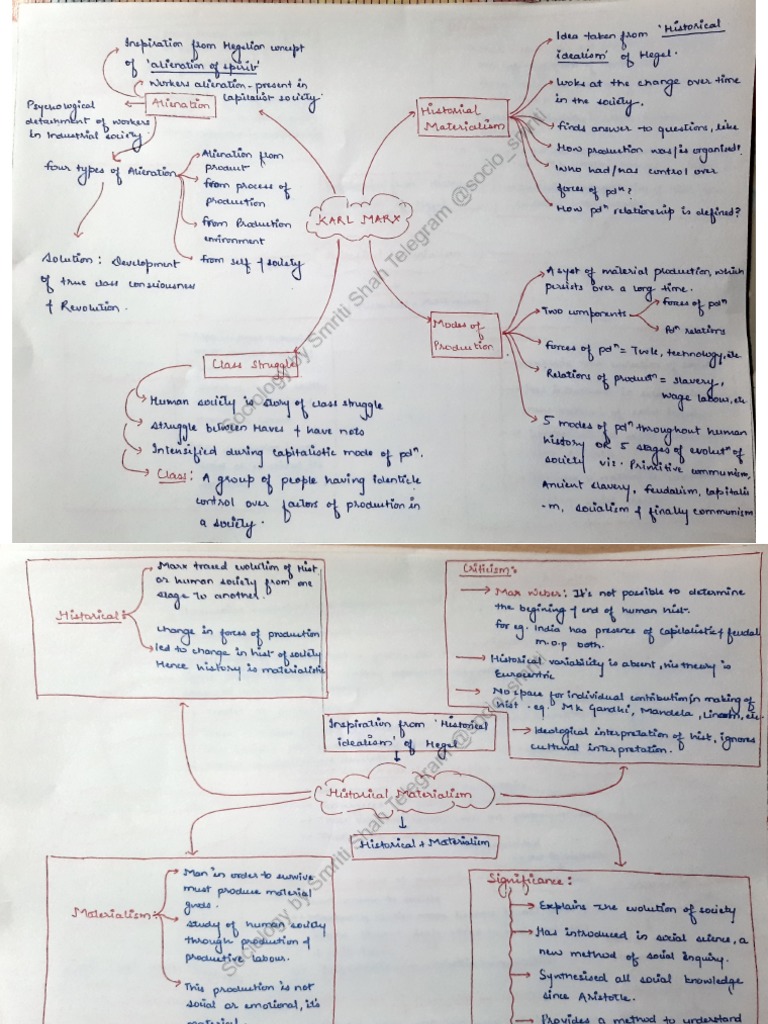 KARL MARX
Alienation
Inspiration from Hegelian concept
of 'alienation of spirit'
Workers alienation - present in
capitalist society.
Psychological
detachment of workers
in Industrial society
four types of Alienation
Alienation from
product
from process of
production
from Production
environment
from self & society
Solution: Development
of true class consciousness
& Revolution.
Historical
Materialism
Idea taken from 'Historical
idealism' of Hegel.
Looks at the change over time
in the society.
finds answer to questions, like
How production was/is organised?
Who had/has control over
forces of pdⁿ?
How pdⁿ relationship is defined?
Modes of
Production
A syst of material production, which
persists over a long time.
Two components
forces of pdⁿ
Pdⁿ relations
forces of pdⁿ = Tools, technology, etc
Relations of productⁿ = slavery,
wage labour, etc
5 modes of pdⁿ throughout human
history OR 5 stages of evolutⁿ of
society viz. Primitive communism,
Ancient slavery, feudalism, capitalis
-m, socialism & finally communism
Class Struggle
Human society is story of class struggle
Struggle between Haves & have nots
Intensified during capitalistic mode of pdⁿ.
Class: A group of people having identicle
control over factors of production in
a society.
Sociology by Smriti Shah Telegram @socio_smriti
Historical:
Marx traced evolution of Hist.
or human society from one
stage to another.
change in forces of production
led to change in hist of society
Hence history is materialistic
Criticism:
Max Weber: It's not possible to determine
the begining & end of human hist.
for eg. India has presence of capitalistic & feudal
m.o.p both.
Historical variability is absent, his theory is
Eurocentric
No space for individual contribution in making of
hist. eg. MK Gandhi, Mandela, Lincoln, etc.
Ideological interpretation of hist, ignores
cultural interpretation.
Inspiration from 'Historical
idealism' of Hegel
Historical Materialism
Historical + Materialism
Materialism:
Man in order to survive
must produce material
goods.
study of human society
through production &
productive labour.
This production is not
social or emotional, it's
Significance:
Explains the evolution of society
Has introduced in social science, a
new method of social Inquiry.
Synthesised all social knowledge
since Aristotle.
Provides a method to understand
Sociology by Smriti Shah Telegram @socio_smriti